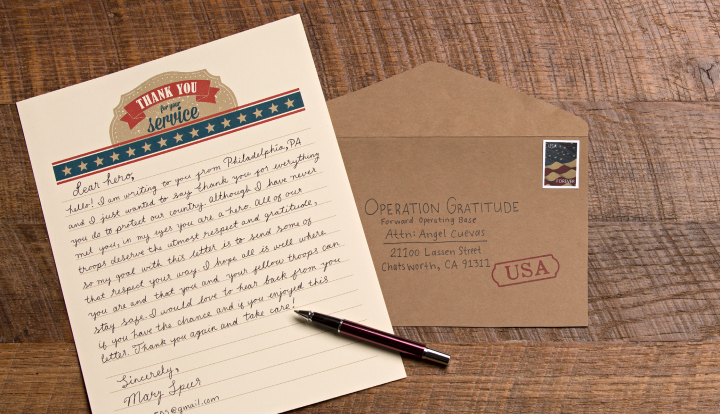 THANK YOU
for your
service
Dear hero,
hello! I am writing to you from Philadelphia, PA
and I just wanted to say thank you for everything
you do to protect our country. Although I have never
met you, in my eyes you are a hero. All of our
troops deserve the utmost respect and gratitude,
so my goal with this letter is to send some of
that respect your way. I hope all is well where
you are and that you and your fellow troops can
stay safe. I would love to hear back from you
if you have the chance and if you enjoyed this
letter. Thank you again and take care!
Sincerely,
Mary Spur
@gmail.com
USA
FOREVER
OPERATION GRATITUDE
Forward Operating Base
Attn: Angel Cuevas
21100 Lassen Street
Chatsworth, CA 91311
USA